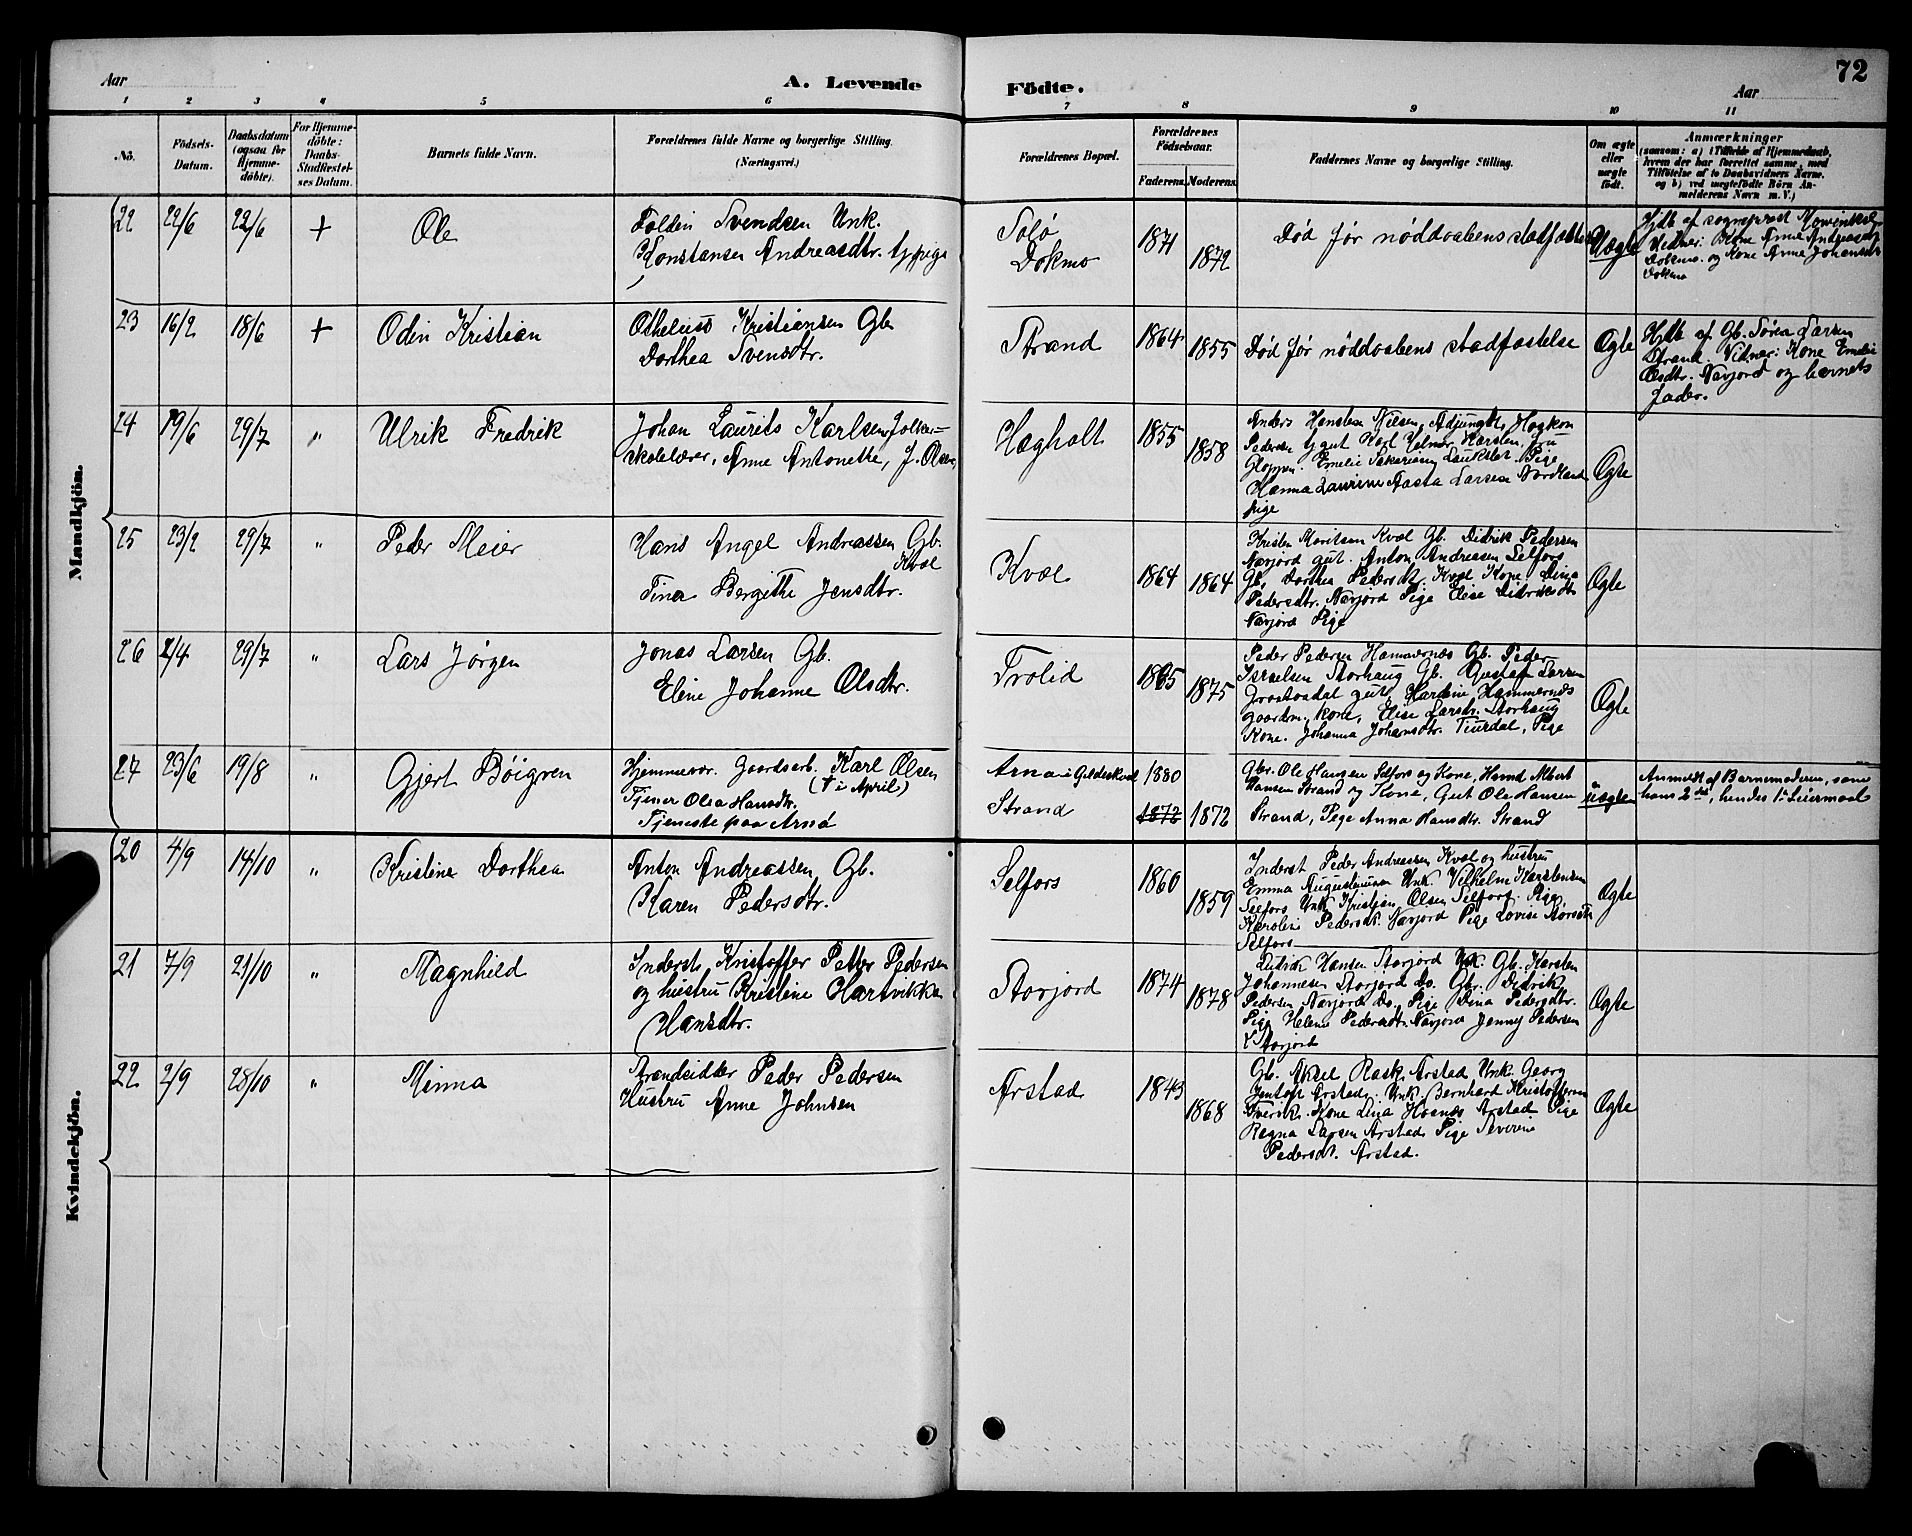 72
Aar
A. Levende
Födte.
Aar
1 2 3 4 5 6 7 8 9 10 11
No.
Födsels-
Datum.
Daabsdatum
(ogsaa for
Hjemme-
döbte).
For Hjemme-
döbte:
Daabs-
Stadfæstel-
ses Datum.
Barnets fulde Navn.
Forældrenes fulde Navne og borgerlige Stilling.
(Næringsvei.)
Forældrenes Bopæl.
Forældrenes
Födselsaar.
Faderens. Moderens.
Faddernes Navne og borgerlige Stilling.
Om ægte
eller
uægte
födt.
Anmærkninger
(saasom: a) i Tilfælde af Hjemmedaab,
hvem der har forrettet samme, med
Tilföielse af to Daabsvidners Navne,
og b) ved uægtefödte Börn An-
melderens Navn m. V.)
Mandkjön.
22 22/6 22/6 + Ole
Svendsen Unk.
Konstanse Andreasdtr.
Solø
Dokmo
1871
1872
Død før nøddaabens stadfæstelse
Uægte
Hjdb af sogneprest Mowinkel
Vidner: Kone Anne Andreasen
Dokmo. og Kone Anne Johansdtr
Dokmo
23 16/2 18/6 + Odin Kristian
Othelius Kristiansen Gb.
Dorthea Svensdtr.
Strand
1864
1855
Død før nøddaabens stadfæstelse
Ægte
Hjdb af Gb. Søren Larsen
Strand. Vidner: Kone Emelie
Olsdtr. Nævjord og barnets
fader.
24 19/6 29/7 " Ulrik Fredrik
Johan Laurits Karlsen, folke-
skolelærer, Anne Antonette, f. Olsen
Hegholt
1855
1858
Anders Hansen Nilsen, Hagkon
Pedersen Karl Karsten,
Emelie Pige
Hanna Laurine Aasta Larsen Nordland
pige
Ægte
25 23/2 29/7 " Peder Meier
Hans Angel Andreassen Gb.
Kvæl
Tina Bergitte Jensdtr.
Kvæl
1864
1864
Kristen Moritsen Kvæl Gb. Didrik Pedersen
Nævjord gut. Anton Andreasen Selfors
Gb, Dorthea Pedersdtr. Kvæl Kone, Dina
Pedersdtr. Nævjord Pige Elise Didriksdtr
Nævjord Pige
Ægte
26 2/4 29/7 " Lars Jørgen
Jonas Larsen Gb.
Eline Johanne Olsdtr.
Trolid
1875
Peder Pedersen Hammernes Gb. Peder
Israelsen Storhaug Gb. Gustaf Larsen
gut, Hammernes
gaardm. kone, Elise Larsdtr. Storhaug
Kone. Johanna Johansdtr. Pige
Ægte
27 23/6 19/8 " Gjert Böigren
Hjemmevær. Gaardsarb. Karl Olsen
(† i April)
Tjener Olea Hansdtr.
Tjeneste paa Arnö
Arnø i Gildeskaal
Strand
1880
1872 1872
Gbr. Ole Hansen Selfors og Kone, Hemd Albert
Hansen Strand og Kone, Gut Ole Hansen
Strand, Pige Anna Hansdtr. Strand
uægte
Anmeldt af Barnemoderen, som
hans 2det, hendes 1ste Leiermaal
Kvindekjön.
20 4/9 14/10 " Kristine Dorthea
Anton Andreassen Gb.
Karen Pedersdtr.
Selfors
1860
1859
Inderst Peder Andreassen Kvæl og hustru
Emma Unk. Vilhelm Karstensen
Selfors Unk Kristian Olsen Selfors. Pige
Karoline Pedersdtr. Nævjord Pige Lovise
Selfors
Ægte
21 7/9 21/10 " Magnhild
Inderst Kristoffer Petter Pedersen
og hustru Kristine Hartvikka
Hansdtr.
Storjord
1874
1878
Didrik Hansen Storjord Unk. Gb. Karsten
Johannesen Storjord Do. Gbr. Didrik
Pedersen Nævjord Do. Pige Dina Pedersdtr.
Pige Helene Pedersdtr. Nævjord Jenny Pedersen
Storjord
Ægte
22 2/9 28/10 " Minna
Strandsidder Peder Pedersen
Hustru Anne Johnsen
Arstad
1843
1868
Gb. Aksel Rask, Arstad Unk. Georg
Jentoft Arstad. Unk Bernhard Kristoffersen
Kone Lina Arstad Pige
Ragna Larsen Arstad Pige Severine
Pedersdtr. Arstad.
Ægte